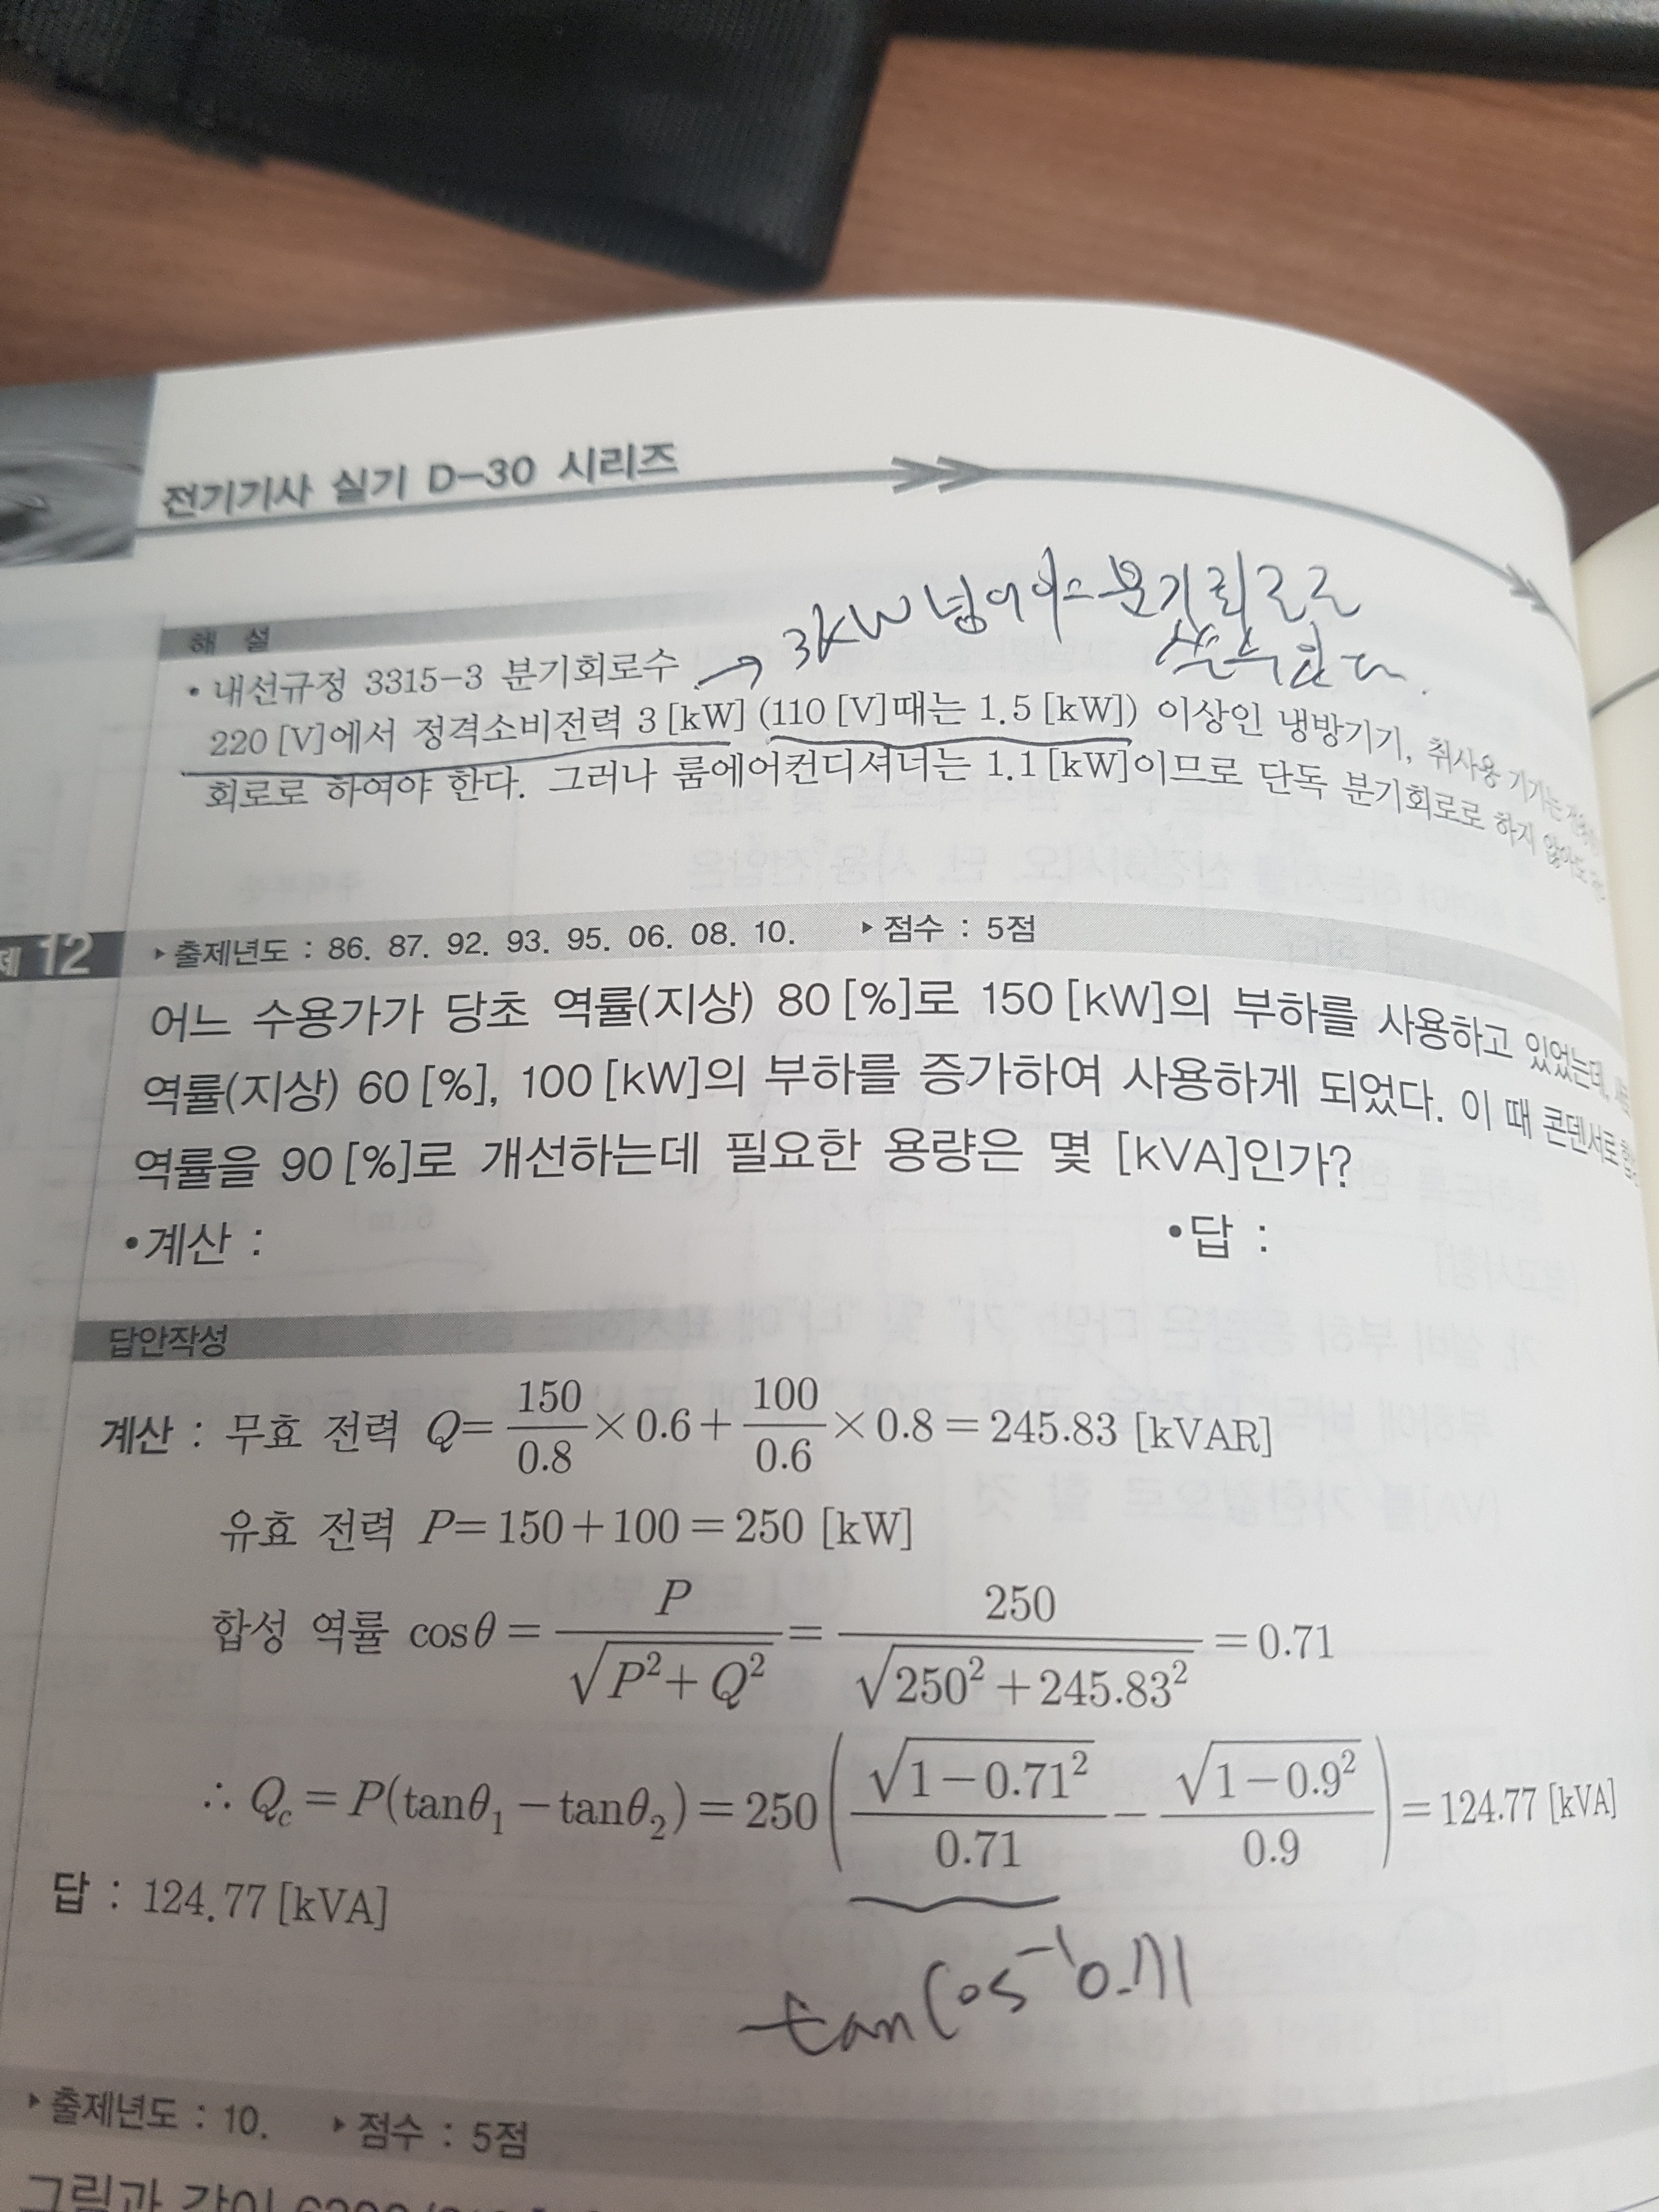 전기기사 실기 D-30 시리즈
3kW 넘어가는 분기회로로
해 설
• 내선규정 3315-3 분기회로수 →
220 [V]에서 정격소비전력 3 [kW] (110 [V]때는 1.5 [kW]) 이상인 냉방기기, 취사용 기기는
회로로 하여야 한다. 그러나 룸에어컨디셔너는 1.1 [kW]이므로 단독 분기회로로 하지 않아도
12 ▸출제년도 : 86. 87. 92. 93. 95. 06. 08. 10. ▸점수 : 5점
어느 수용가가 당초 역률(지상) 80 [%]로 150 [kW]의 부하를 사용하고 있었는데,
역률(지상) 60 [%], 100 [kW]의 부하를 증가하여 사용하게 되었다. 이 때 콘덴서로
역률을 90 [%]로 개선하는데 필요한 용량은 몇 [kVA]인가?
•계산 : •답 :
답안작성
계산 : 무효 전력 Q = 150/0.8 × 0.6 + 100/0.6 × 0.8 = 245.83 [kVAR]
유효 전력 P = 150 + 100 = 250 [kW]
합성 역률 cosθ = P/√(P² + Q²) = 250/√(250² + 245.83²) = 0.71
∴ Qc = P(tanθ₁ − tanθ₂) = 250(√(1−0.71²)/0.71 − √(1−0.9²)/0.9) = 124.77 [kVA]
답 : 124.77 [kVA]
tan Cos⁻¹0.71
▸출제년도 : 10. ▸점수 : 5점
그림과 같이